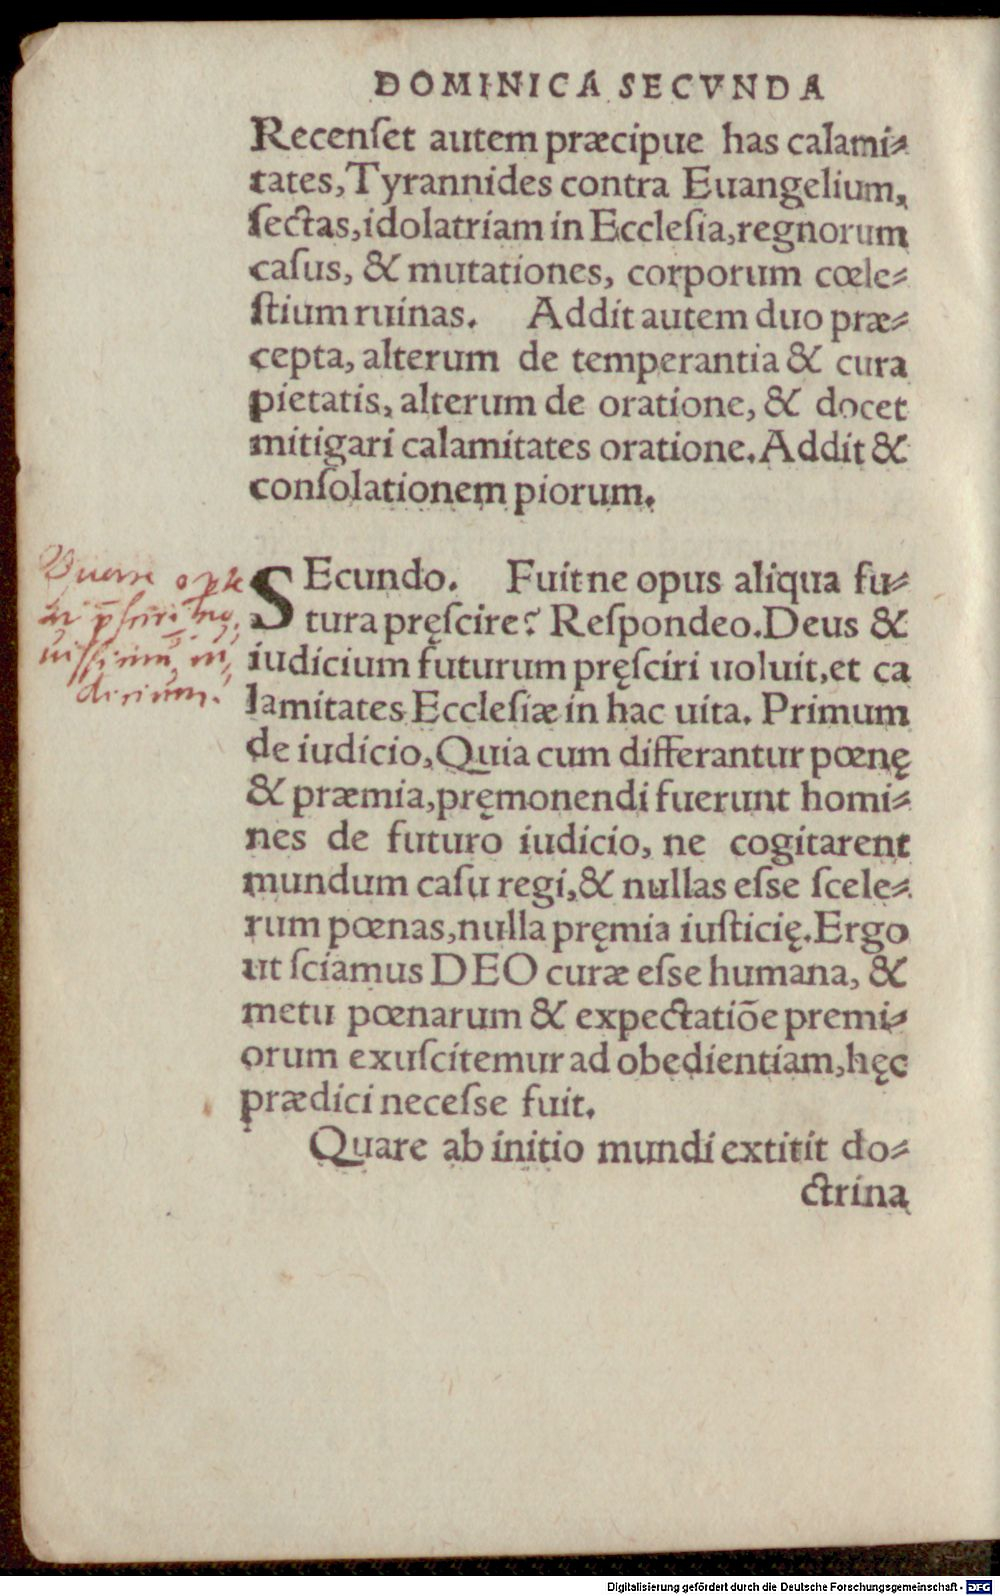 DOMINICA SECVNDA
Recenſet autem præcipue has calami⸗
tates, Tyrannides contra Euangelium,
ſectas, idolatriam in Eccleſia, regnorum
caſus, & mutationes, corporum cœle⸗
ſtium ruinas. Addit autem duo præ⸗
cepta, alterum de temperantia & cura
pietatis, alterum de oratione, & docet
mitigari calamitates oratione. Addit &
conſolationem piorum.
SEcundo. Fuitne opus aliqua fu⸗
tura pręſcire? Reſpondeo. Deus &
iudicium futurum pręſciri uoluit, et ca
lamitates Eccleſiæ in hac uita. Primum
de iudicio, Quia cum differantur pœnę
& præmia, pręmonendi fuerunt homi⸗
nes de futuro iudicio, ne cogitarent
mundum caſu regi, & nullas eſse ſcele⸗
rum pœnas, nulla pręmia iuſticię. Ergo
ut ſciamus DEO curæ eſse humana, &
metu pœnarum & expectatiõe premi⸗
orum exuſcitemur ad obedientiam, hęc
prædici neceſse fuit.
Quare ab initio mundi extitit do⸗
ctrina
Quare
dicium.
Digitalisierung gefördert durch die Deutsche Forschungsgemeinschaft - DFG